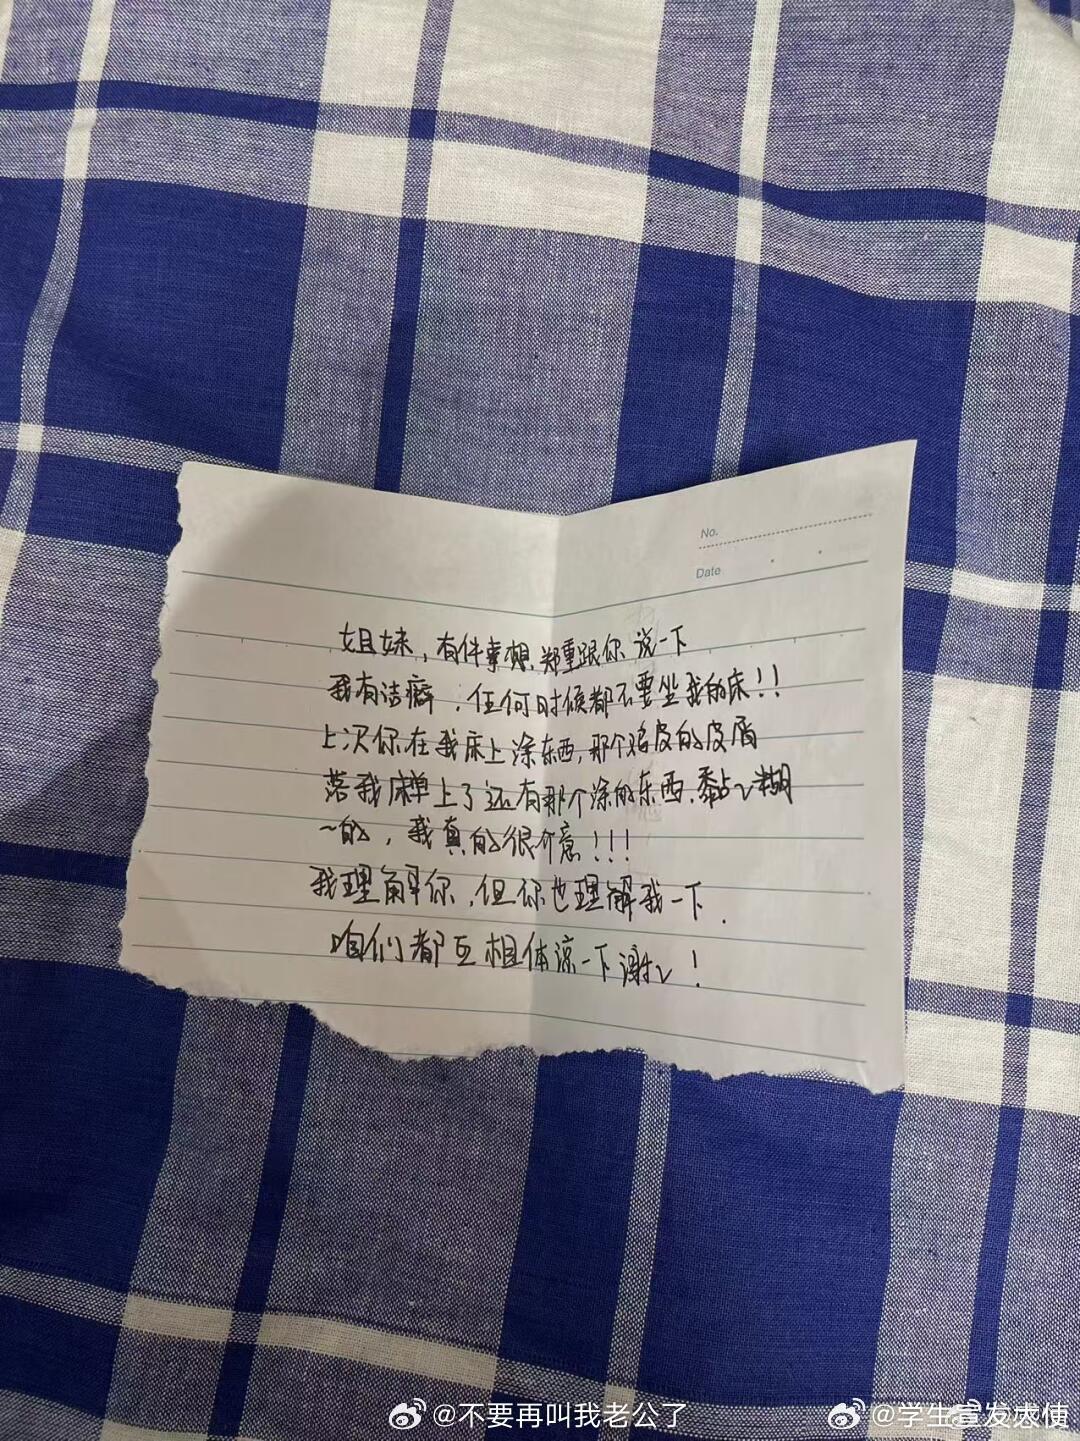 No.
Date
姐妹，有件事想郑重跟你说一下
我有洁癖，任何时候都不要坐我的床！！
上次你在我床上涂东西，那个鸡皮的皮屑
落我床单上了还有那个涂的东西，黏~糊
~的，我真的很介意！！！
我理解你，但你也理解我一下.
咱们都互相体谅一下谢~！
@不要再叫我老公了
@学生